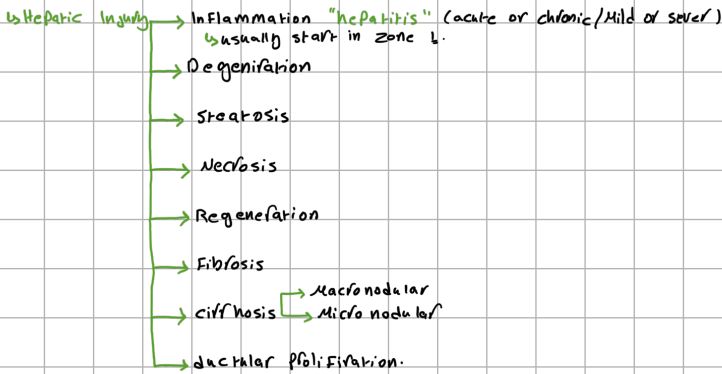 ↳Hepatic Injury → Inflammation "hepatitis" (acute or chronic/Mild or sever)
↳usually start in zone 1.
→ Degeniration
→ Steatosis
→ Necrosis
→ Regeneration
→ Fibrosis
→ Macronodular
→ cirrhosis → Micro nodular
→ ductular Prolifiration.